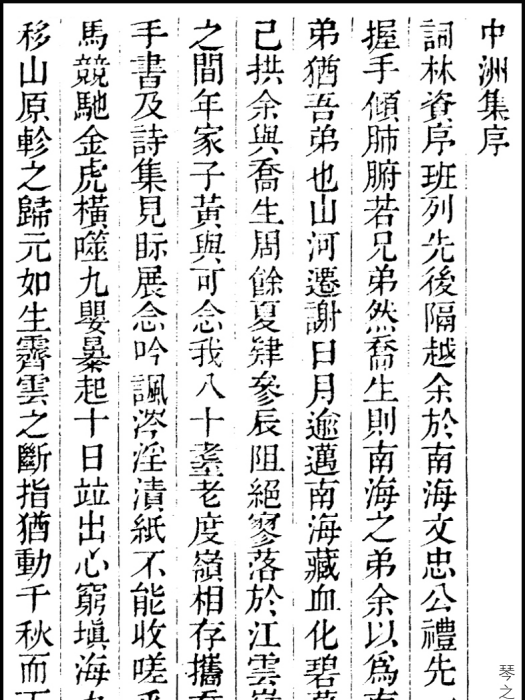 中洲集序
詞林資序班列先後隔越余於南海文忠公禮先
握手傾肺腑若兄弟然喬生則南海之弟余以爲
弟猶吾弟也山河遷謝日月逾邁南海藏血化碧
己拱余與喬生周餘夏肄參辰阻絕寥落於江雲
之間年家子黃與可念我八十耋老度嶺相存攜
手書及詩集見眎展念吟諷涔淫漬紙不能收嗟
馬競馳金虎橫噬九嬰暴起十日竝出心窮塡海
移山原軫之歸元如生霽雲之斷指猶動千秋而
琴之